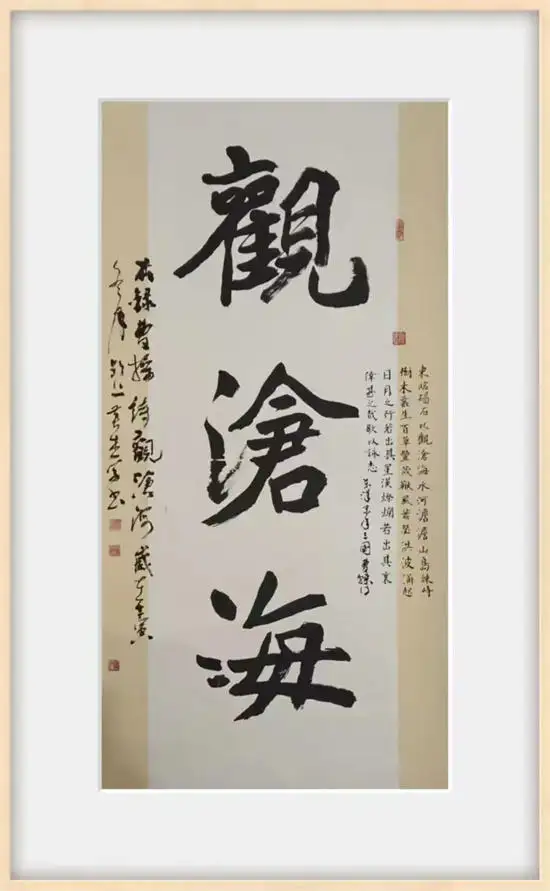 觀滄海
東臨碣石以觀滄海水河澹澹山島竦峙
樹木叢生百草豐茂秋風蕭瑟洪波涌起
日月之行若出其星漢燦爛若出其裏
甚之哉歌以詠志東漢末年三國曹操
錄曹操詩觀滄海歲在壬寅
書